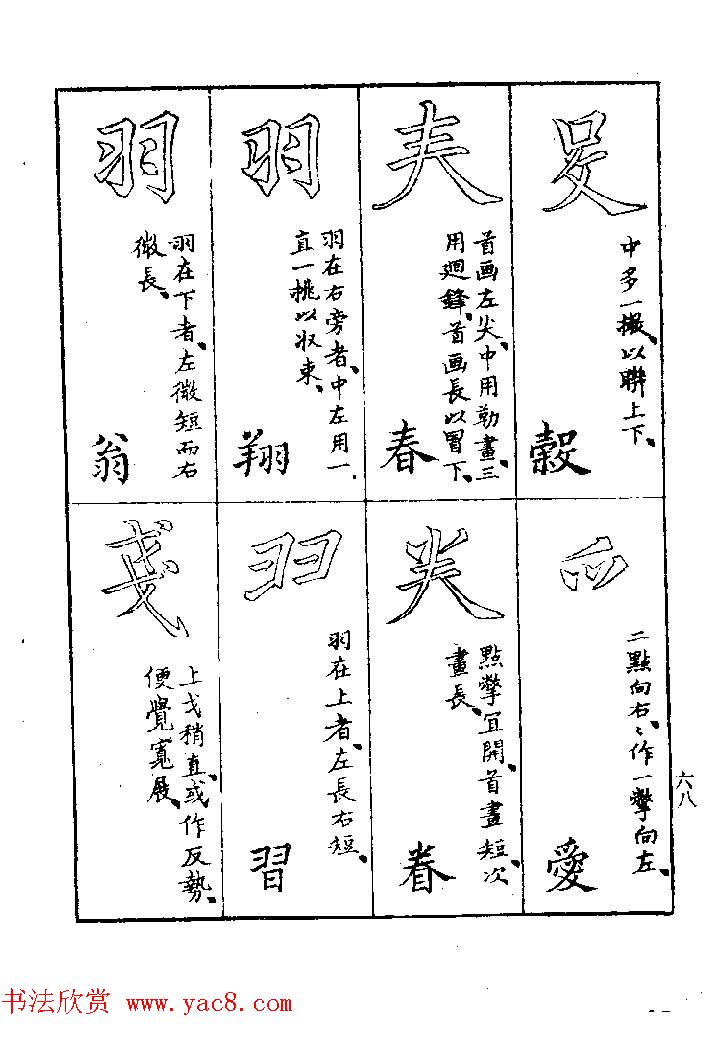 中多一撥、以聯上下、
縠
首画左尖、中用勒畫、三
用廻鋒、首画長以冒下、
春
羽在右旁者、中左用一
直一挑以収束、
翔
羽
羽在下者、左微短而右
微長、
翁
羽
二點向右、、作一撆向左、
愛
點撆宜開、首畫短、次
畫長、
眷
羽在上者、左長右短、
習
上戈稍直、或作反勢、
便覺寬展、
六八
书法欣赏 www.yac8.com